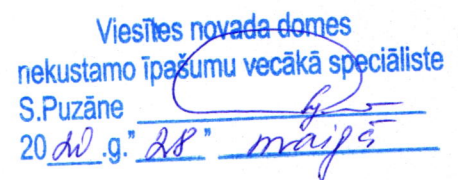 Viesītes novada domes
nekustamo īpašumu vecākā speciāliste
S.Puzāne
20 20 .g." 28 " maijā